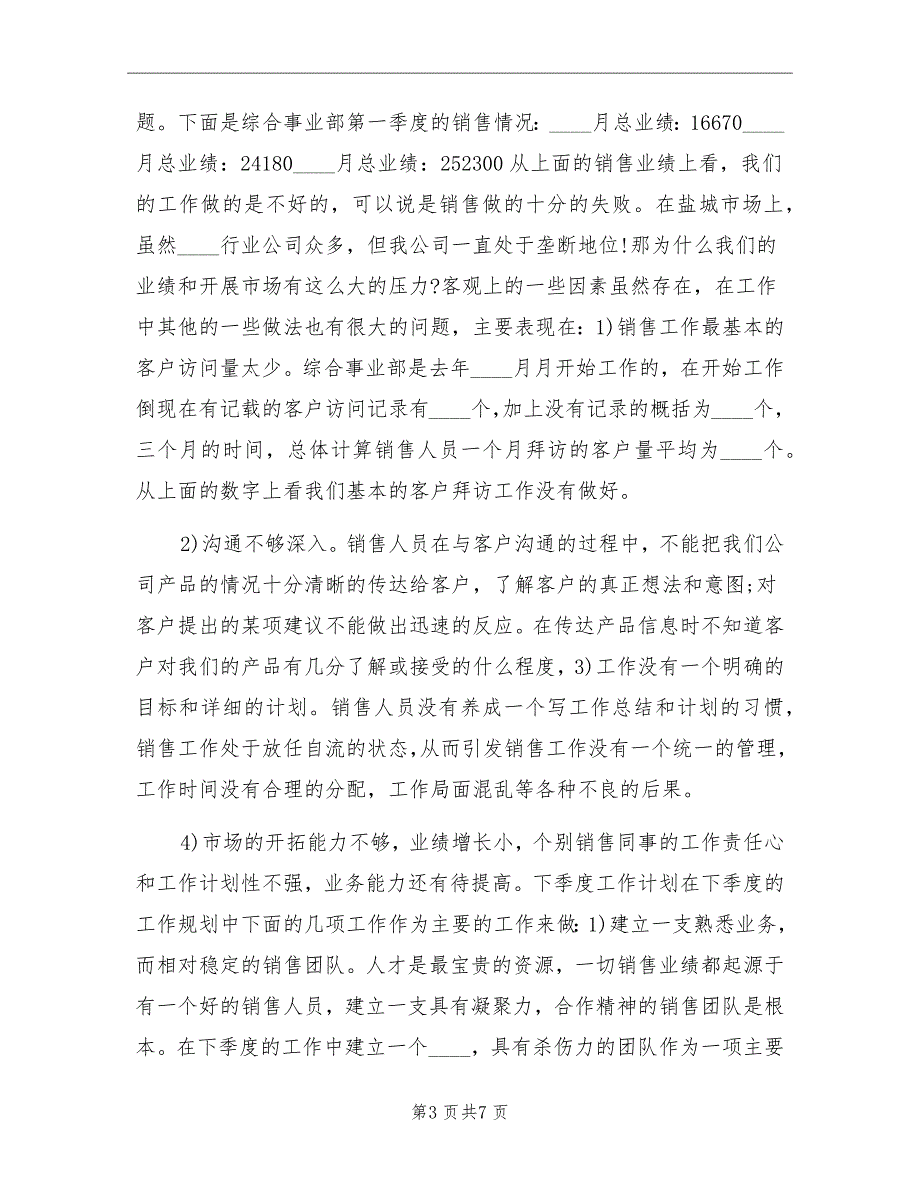 题。下面是综合事业部第一季度的销售情况：____月总业绩：16670____
月总业绩：24180____月总业绩：252300 从上面的销售业绩上看，我们
的工作做的是不好的，可以说是销售做的十分的失败。在盐城市场上，
虽然____行业公司众多，但我公司一直处于垄断地位!那为什么我们的
业绩和开展市场有这么大的压力?客观上的一些因素虽然存在，在工作
中其他的一些做法也有很大的问题，主要表现在：1)销售工作最基本的
客户访问量太少。综合事业部是去年____月月开始工作的，在开始工作
倒现在有记载的客户访问记录有____个,加上没有记录的概括为____个，
三个月的时间，总体计算销售人员一个月拜访的客户量平均为____个。
从上面的数字上看我们基本的客户拜访工作没有做好。
2)沟通不够深入。销售人员在与客户沟通的过程中，不能把我们公
司产品的情况十分清晰的传达给客户，了解客户的真正想法和意图;对
客户提出的某项建议不能做出迅速的反应。在传达产品信息时不知道客
户对我们的产品有几分了解或接受的什么程度，3)工作没有一个明确的
目标和详细的计划。销售人员没有养成一个写工作总结和计划的习惯，
销售工作处于放任自流的状态,从而引发销售工作没有一个统一的管理，
工作时间没有合理的分配，工作局面混乱等各种不良的后果。
4)市场的开拓能力不够，业绩增长小，个别销售同事的工作责任心
和工作计划性不强，业务能力还有待提高。下季度工作计划在下季度的
工作规划中下面的几项工作作为主要的工作来做：1)建立一支熟悉业务，
而相对稳定的销售团队。人才是最宝贵的资源，一切销售业绩都起源于
有一个好的销售人员，建立一支具有凝聚力，合作精神的销售团队是根
本。在下季度的工作中建立一个____，具有杀伤力的团队作为一项主要
第3 页共7 页